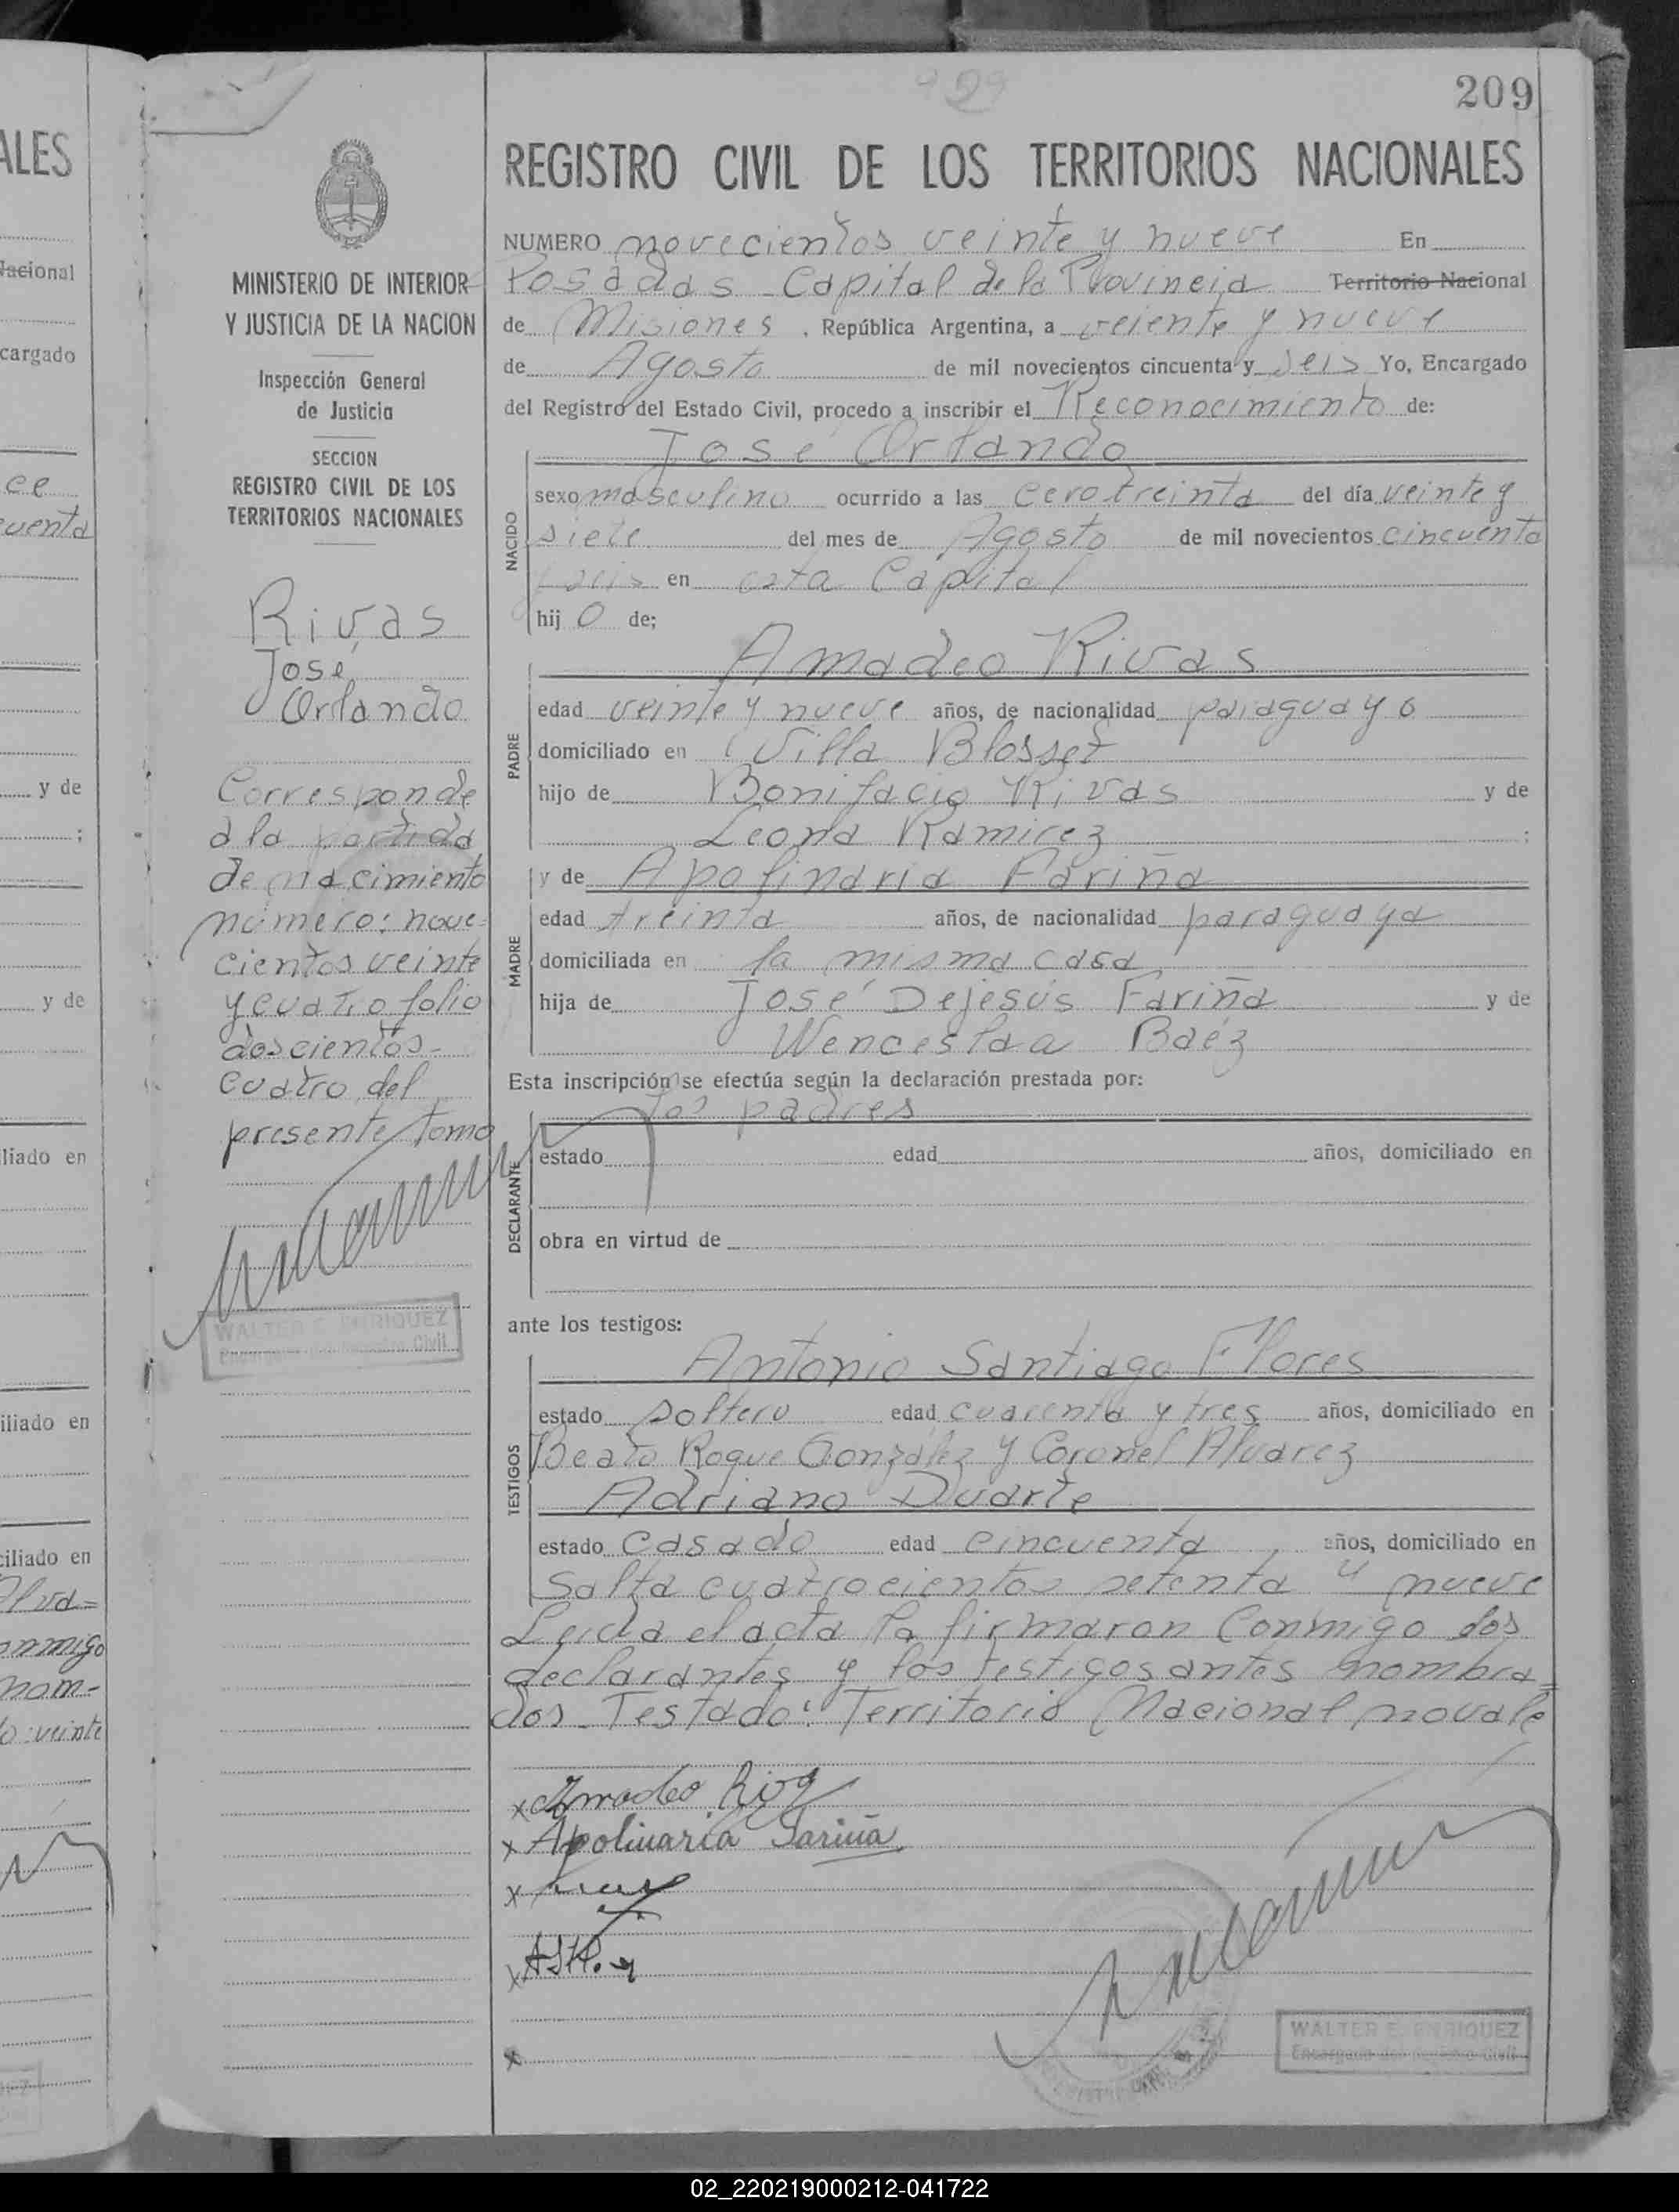 ALES
Nacional
cargado
ce
cuenta
y de
;
y de
liado en
iliado en
ciliado en
Alva=
onmigo
nom-
o: veinte
929
209
MINISTERIO DE INTERIOR
Y JUSTICIA DE LA NACION
Inspección General
de Justicia
SECCION
REGISTRO CIVIL DE LOS
TERRITORIOS NACIONALES
Rivas
José
Orlando
Corresponde
a la partida
de nacimiento
número: nove=
cientos veinte
y cuatro folio
doscientos-
cuatro del
presente tomo
WALTER E. ENRIQUEZ
Encargado del Registro Civil
REGISTRO CIVIL DE LOS TERRITORIOS NACIONALES
NUMERO novecientos veinte y nueve En
Posadas Capital de la Provincia Territorio Nacional
de Misiones , República Argentina, a veiente y nueve
de Agosto de mil novecientos cincuenta y seis Yo, Encargado
del Registro del Estado Civil, procedo a inscribir el Reconocimiento de:
José Orlando
NACIDO
sexo masculino ocurrido a las cero treinta del día veinte y
siete del mes de Agosto de mil novecientos cincuenta
y seis en esta Capital
hij o de;
Amadeo Rivas
PADRE
edad veinte y nueve años, de nacionalidad paraguayo
domiciliado en Villa Blosset
hijo de Bonifacio Rivas y de
Leona Ramirez ;
y de Apolinaria Fariña
MADRE
edad treinta años, de nacionalidad paraguaya
domiciliada en la misma casa
hija de José Dejesús Fariña y de
Wenceslaa Baéz
Esta inscripción se efectúa según la declaración prestada por:
los padres
DECLARANTE
estado edad años, domiciliado en
obra en virtud de
ante los testigos:
Antonio Santiago Flores
TESTIGOS
estado soltero edad cuarenta y tres años, domiciliado en
Beato Roque González y Coronel Alvarez
Adriano Duarte
estado casado edad cincuenta años, domiciliado en
Salta cuatrocientos setenta y nueve
Leida el acta la firmaron conmigo los
declarantes y los testigos antes nombra=
dos. Testado: Territorio Nacional no vale
x Amadeo Riva
x Apolinaria Fariña
x
x
x
WALTER E. ENRIQUEZ
Encargado del Registro Civil
02_220219000212-041722